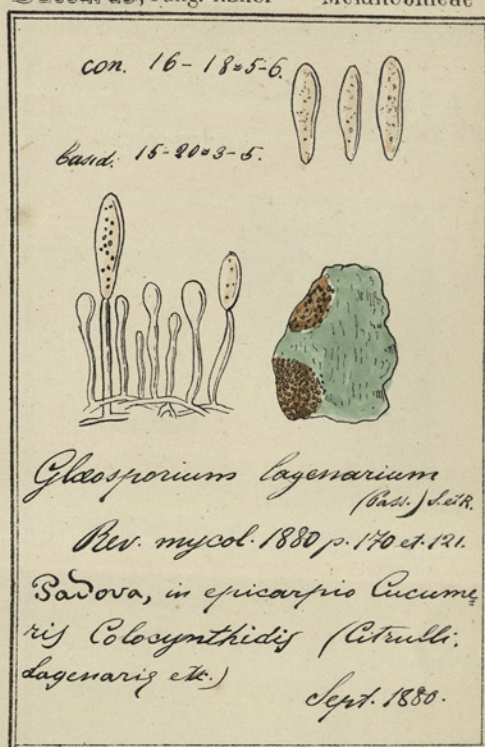 Fung. Melanconieae
con. 16-18=5-6.
basid. 15-20=3-5.
Glœosporium lagenarium
(Pass.) S. et R.
Rev. mycol. 1880 p. 170 et. 121.
Padova, in epicarpio Cucume=
ris Colocynthidis (Citrulli,
Lagenarię etc.)
Sept. 1880.